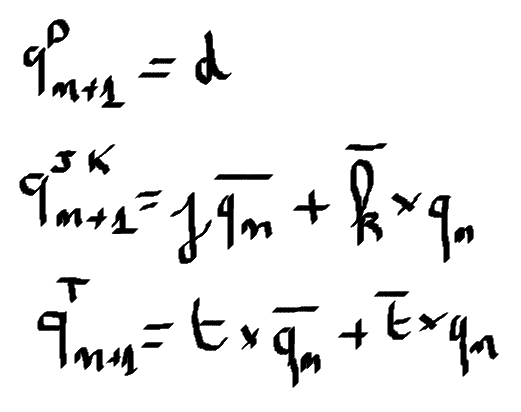 q^D_{n+1} = d
q^{JK}_{n+1} = j \overline{q_n} + \overline{k} × q_n
q^T_{n+1} = t × \overline{q_n} + \overline{t} × q_n